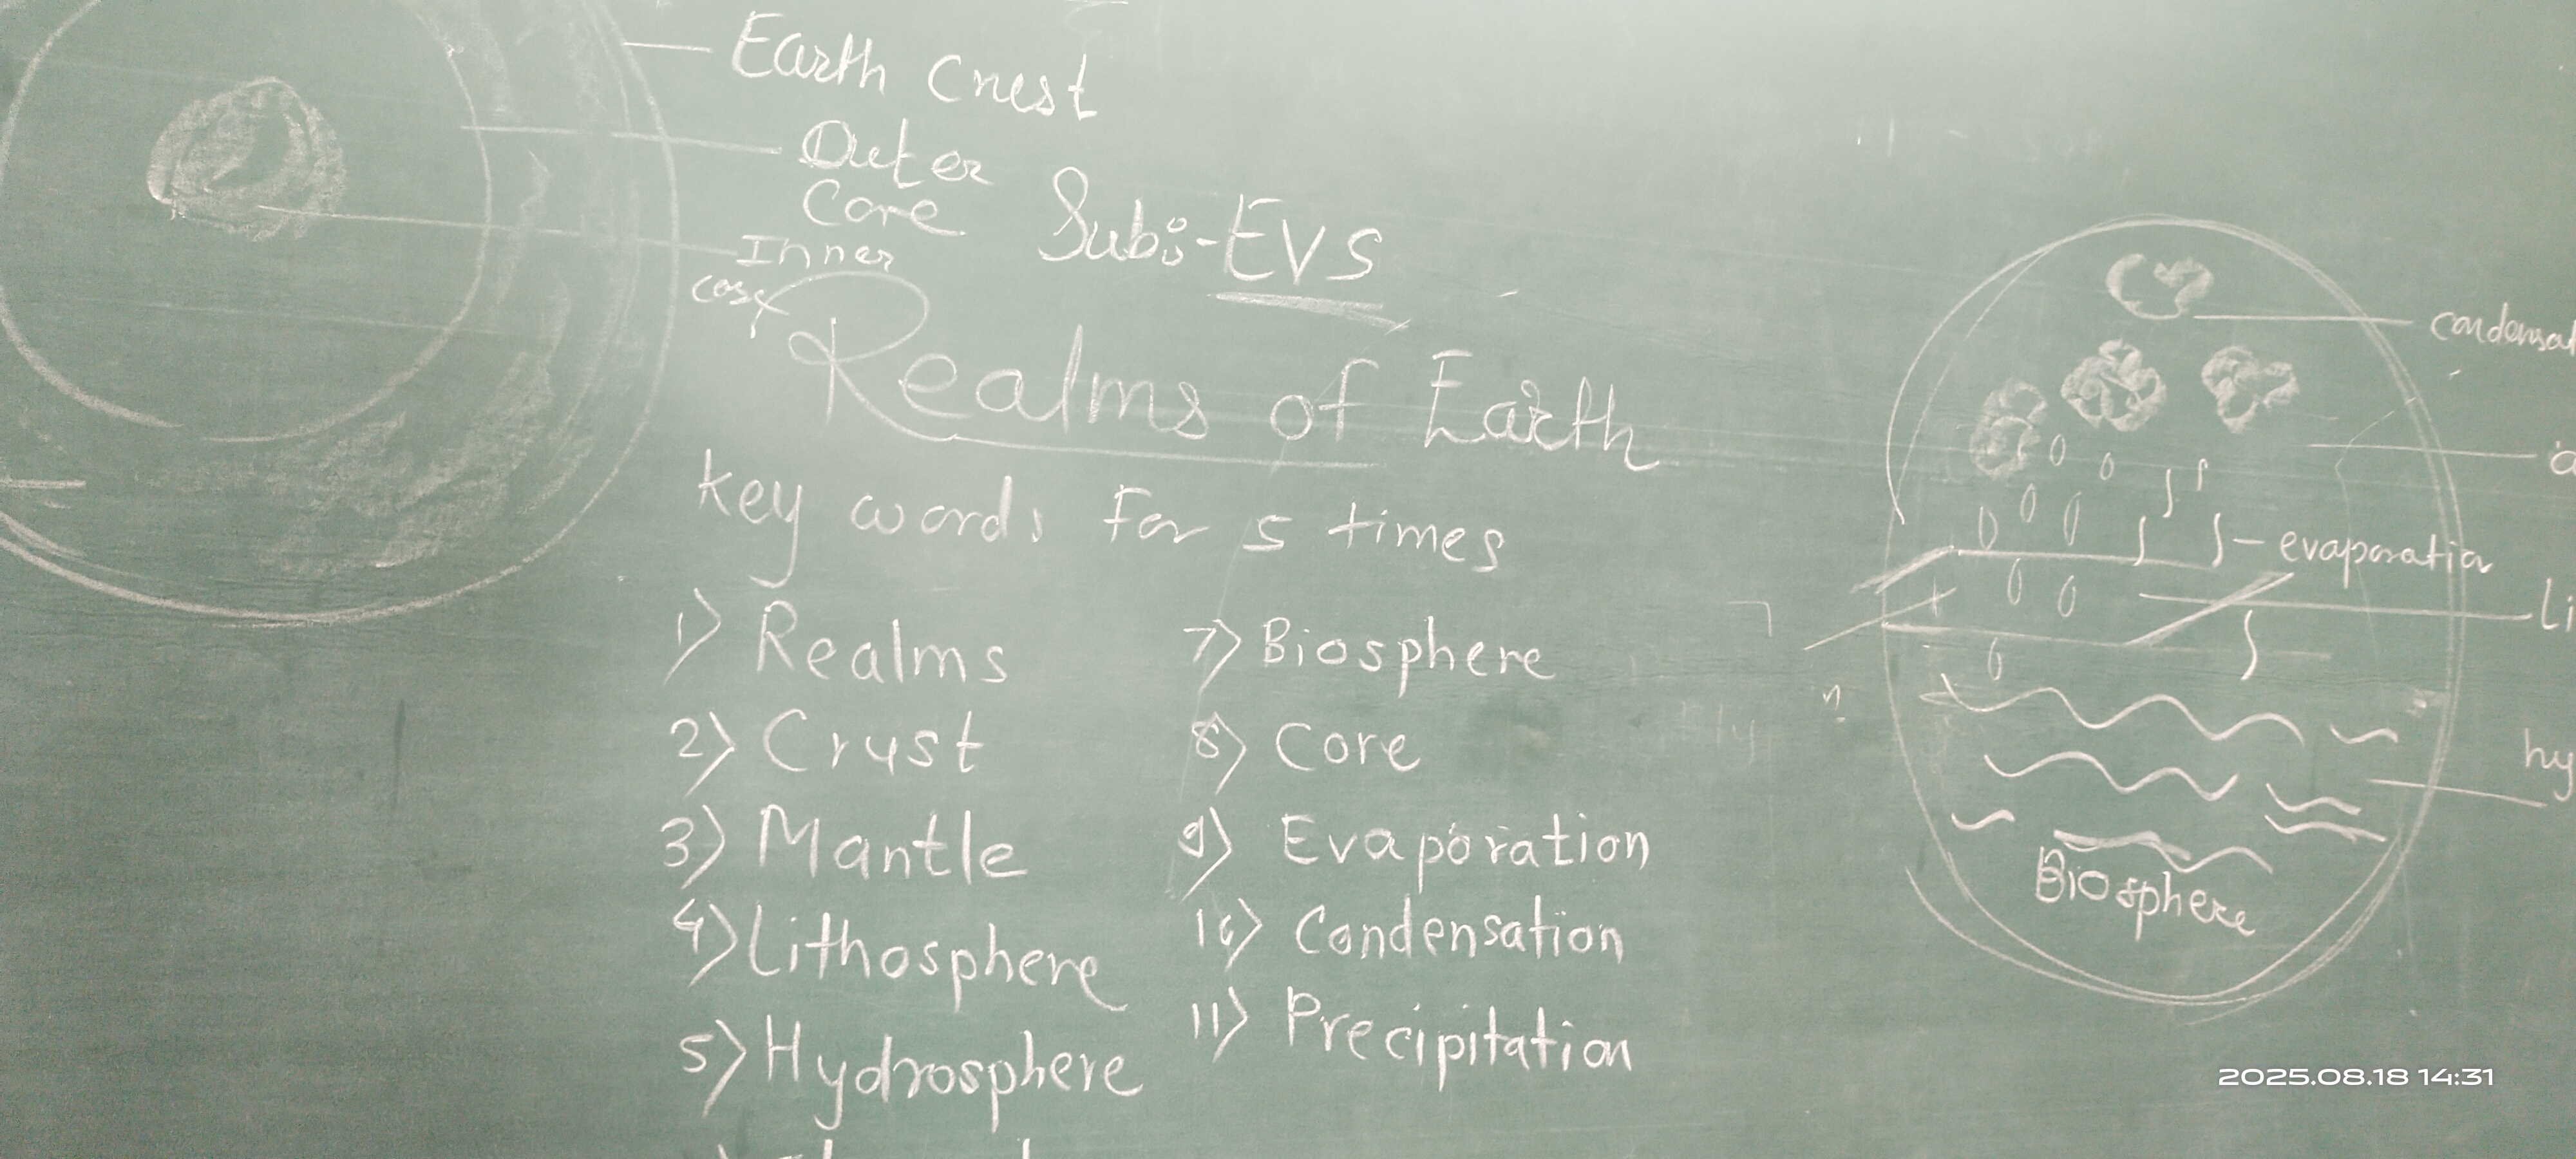 Earth Crest
Outer
Core
Inner
Sub:-EVS
Realms of Earth
key words for 5 times
1) Realms
2) Crust
3) Mantle
4) Lithosphere
5) Hydrosphere
7) Biosphere
8) Core
9) Evaporation
10) Condensation
11) Precipitation
evaporation
Biosphere
2025.08.18 14:31